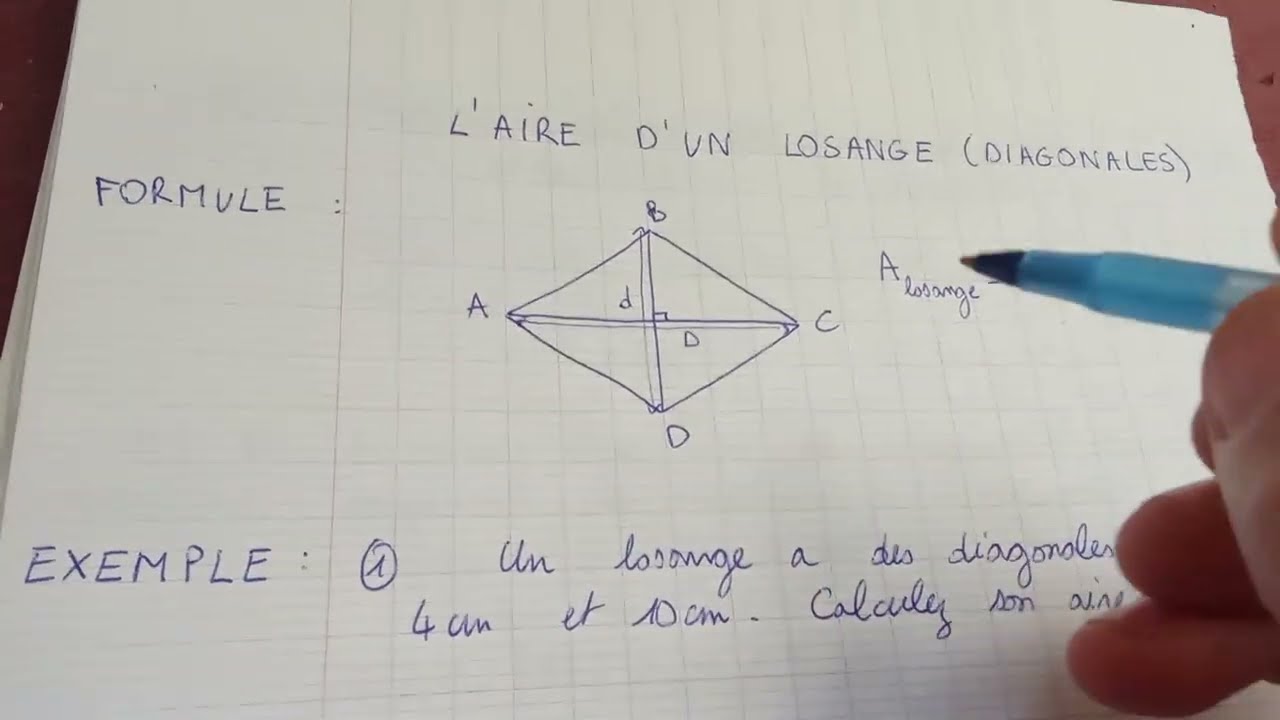 L'AIRE D'UN LOSANGE (DIAGONALES)
FORMULE :
B
A losange =
d
A
C
D
D
EXEMPLE : ① Un losange a des diagonales
4 cm et 10 cm. Calculez son aire